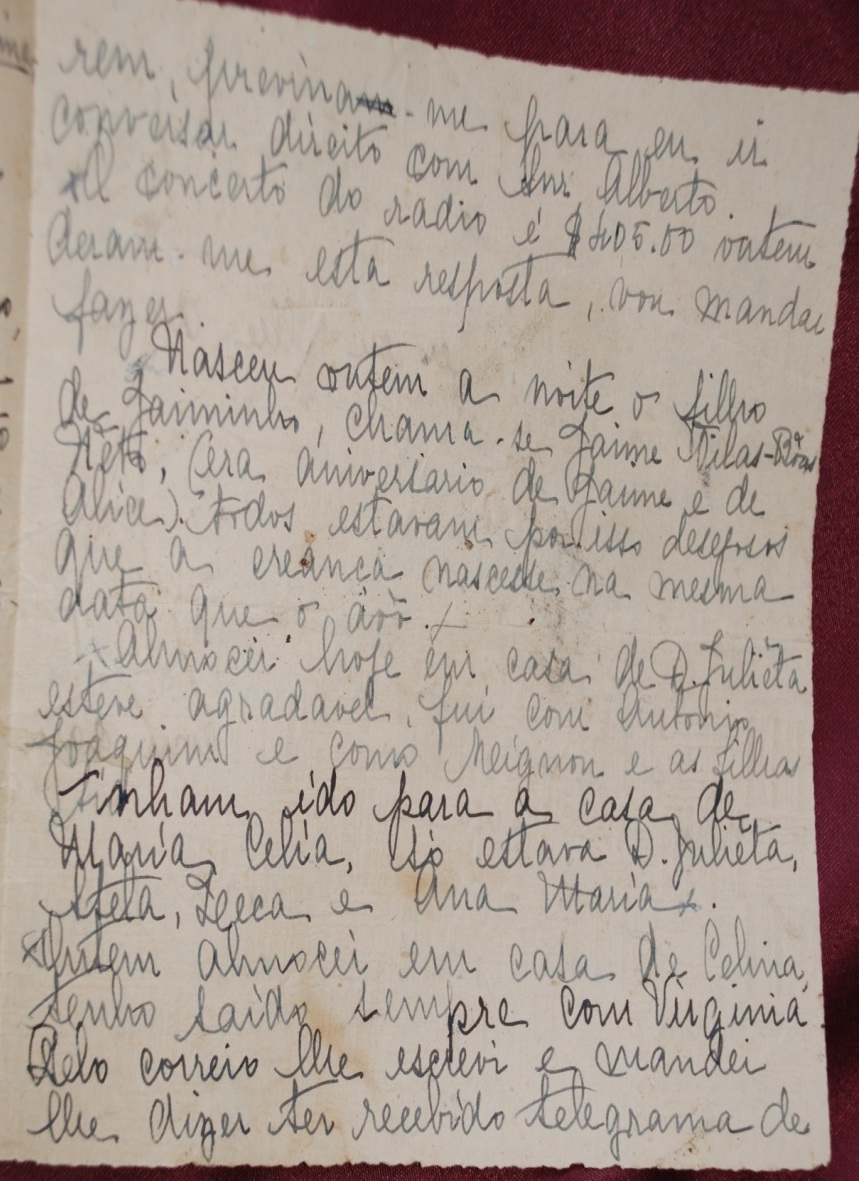 rem, previna-me para eu ir
conversar direito com Snr. Alberto.
O concerto do radio é $405.00 ontem
deram-me esta resposta, vou mandar
fazer.
Nasceu ontem a noite o filho
de Jaiminho, chama-se Jaime Vilas-Bôas
Néto, (era aniversario de Jaime e de
Alice). todos estavam por isso desejosos
que a creança nascesse na mesma
data que o avô.
Almocei hoje em casa de D. Julieta
esteve agradavel, fui com Antonio
Joaquim e como Meignon e as filhas
tinham ido para a casa de
Maria Celia, só estava D. Julieta,
Stela, Zeca e Ana Maria.
Ontem almocei em casa de Celina,
tenho saído sempre com Virginia.
Pelo correio lhe escrevi e mandei
lhe dizer ter recebido telegrama de